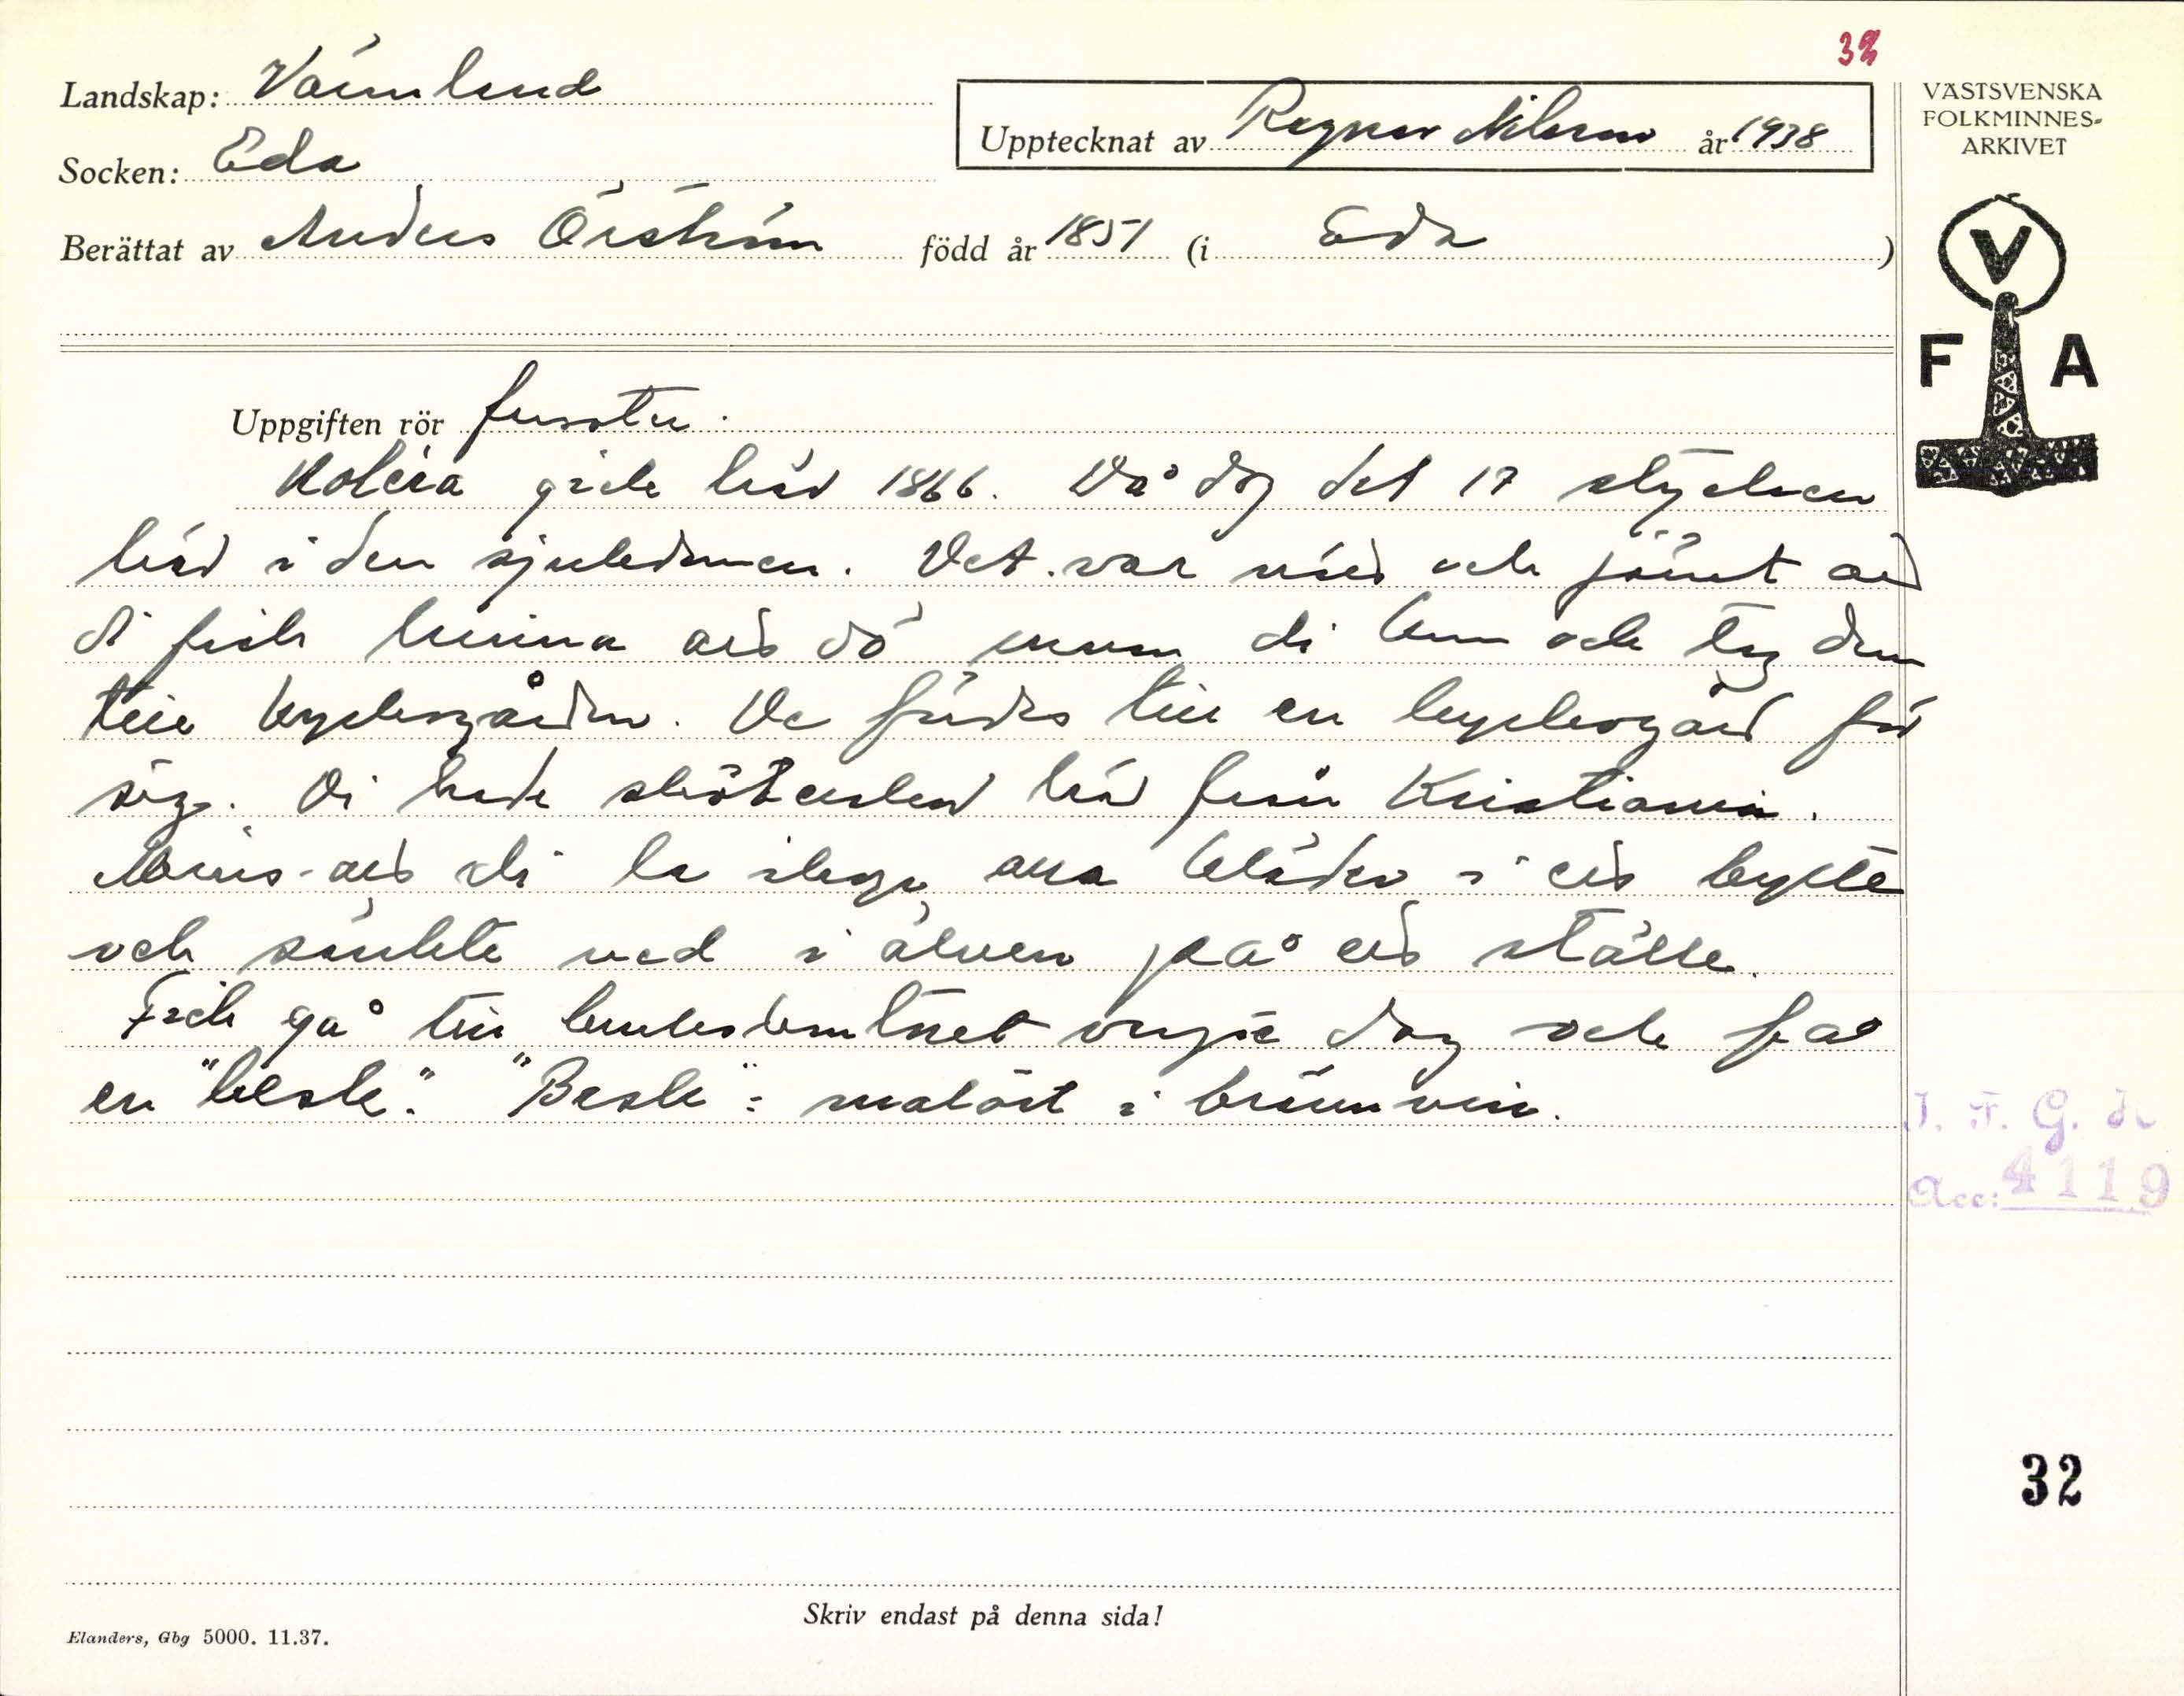 32
Landskap: Värmland
Upptecknat av Ragnar Nilsson år 1938
VÄSTSVENSKA
FOLKMINNES-
ARKIVET
Socken: Eda
Berättat av Anders Örström född år 1851 (i Eda )
V
F A
Uppgiften rör farsoter.
Kolera gick här 1866. Då dog det 17 stycken
här i den sjukdomen. Det var nöd och jämt att
di fick binna att dö innan di kom och tog dem
till kyrkogården. De fördes till en kyrkogård för
sig. Di hade sköterskor här från Kristiania.
Minns att di la alla kläder i ett bytte
och sänkte ned i älven på ett ställe.
Fick gå till varje dag och få
en "besk". "Besk" = malört i brännvin.
I. F. G. H
Acc: 4119
32
Skriv endast på denna sida!
Elanders, Gbg 5000. 11.37.